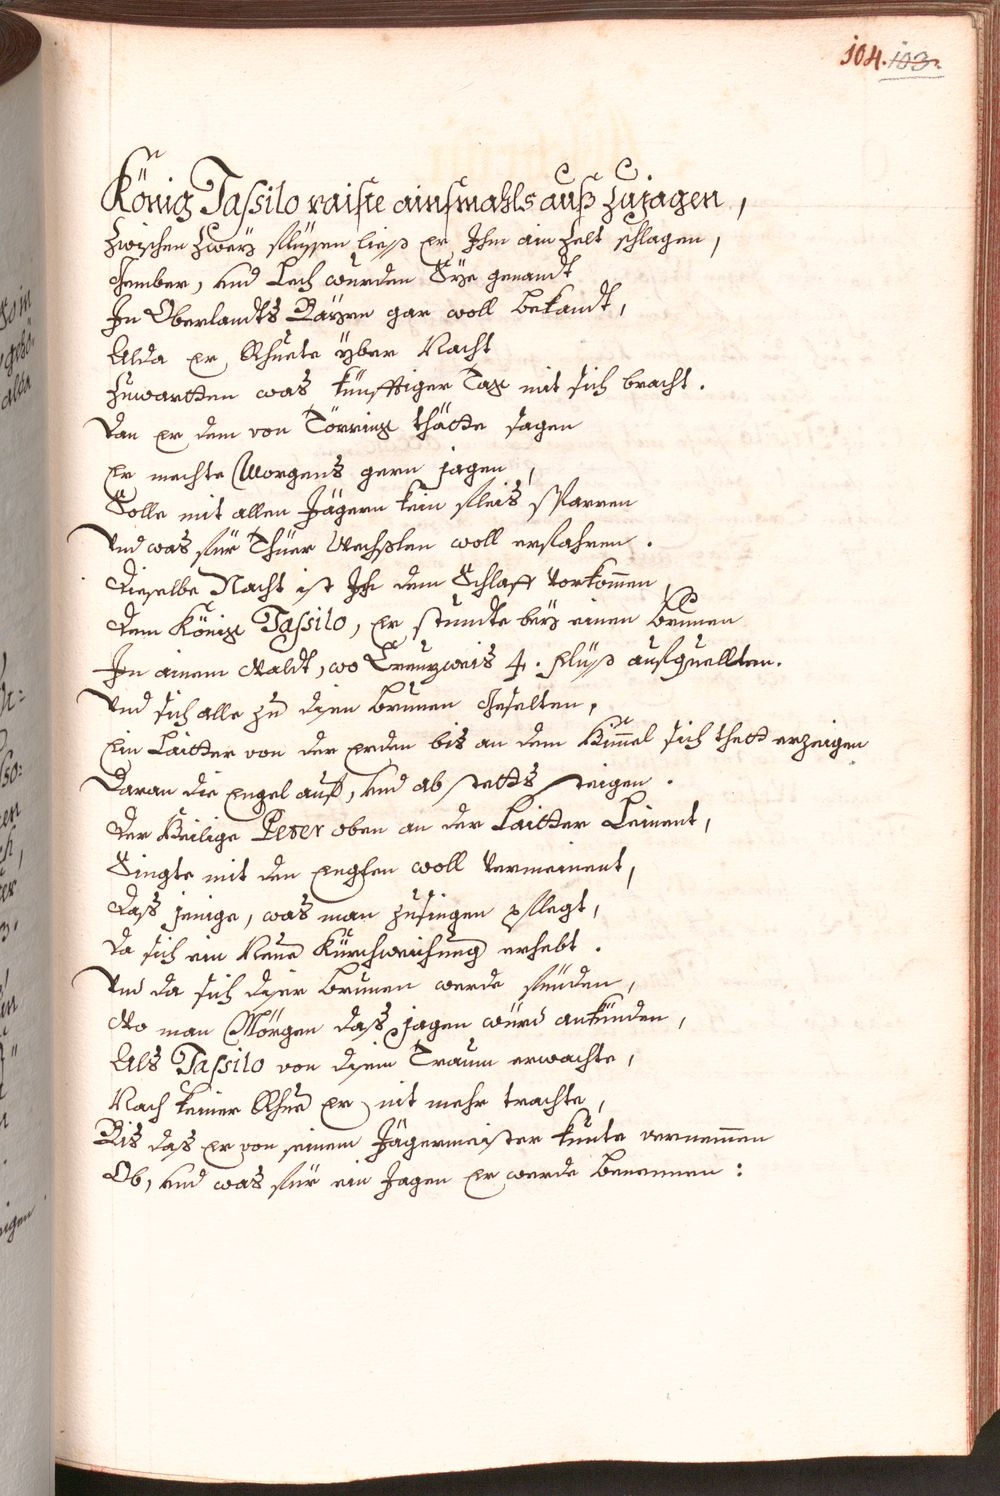 104. 103.
König Tassilo raiste ainsmahls auß zujagen,
Zwischen Zweÿ flüssen ließ Er Ihm ain Zelt schlagen,
Amber, vnd Lech wurden Sÿe genandt
In Oberlandts Baÿrn gar woll bekandt,
Alda Er Rhuete über Nacht
Zuwartten was künfftiger Tag mit sich bracht.
Dan Er dem von Törring thätte sagen
Er mechte Morgens gern jagen,
Solle mit allen Jägern kein fleis sparren
Vnd was für Thüer Wechßlen woll erfahren.
Dieselbe Nacht ist Ihm dem Schlaff vorkommen
Dem König Tassilo, Er stundte beÿ einen Brunen
In ainem Waldt, wo Creuzweis 4. Flüß aufquellten.
Vnd sich alle zu disen Brunen geselten,
Ein Laitter von der Erden bis an dem Himmel sich thett erzeigen
Daran die Engel auf, vnd ab stetts steigen.
Der Heilige Peter oben an der Laitter Leinent,
Singte mit den Englen woll vermeinent,
Daß jenige, was man zusingen pflegt,
Da sich ein Neue Kürchweichung erhebt.
Vnd da sich diser Brunen werde fünden,
Wo man Mörgen daß jagen würd ankünden,
Als Tassilo von disem Traum erwachte,
Nach keiner Rhue Er nit mehr trachte,
Bis das Er von seinem Jägermeister kunte vernemmen
Ob, vnd was für ein Jagen Er werde benennen: